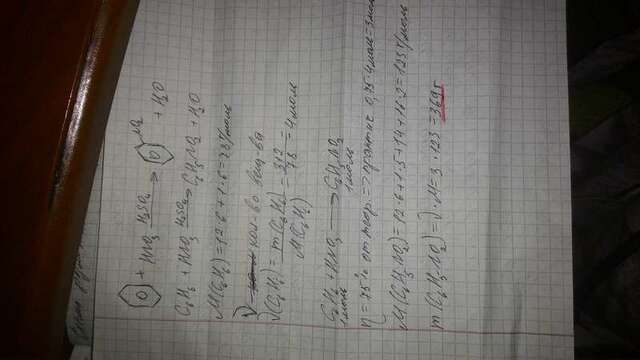 + HNO₃ H₂SO₄ → NO₂ + H₂O
C₆H₆ + HNO₃ H₂SO₄ → C₆H₅NO₂ + H₂O
M(C₆H₆) = 12·6 + 1·6 = 78 г/моль
√ кол-во вещ-ва
√(C₆H₆) = m(C₆H₆) / M(C₆H₆) = 312 / 78 = 4 моль
C₆H₆ + HNO₃ → C₆H₅NO₂
1 моль 1 моль
η = 75% от теор. => практис 0,75·4 моль = 3 моль
M(C₆H₅NO₂) = 12·6 + 1·5 + 14 + 16·2 = 123 г/моль
m(C₆H₅NO₂) = √·M = 3·123 = 369 г